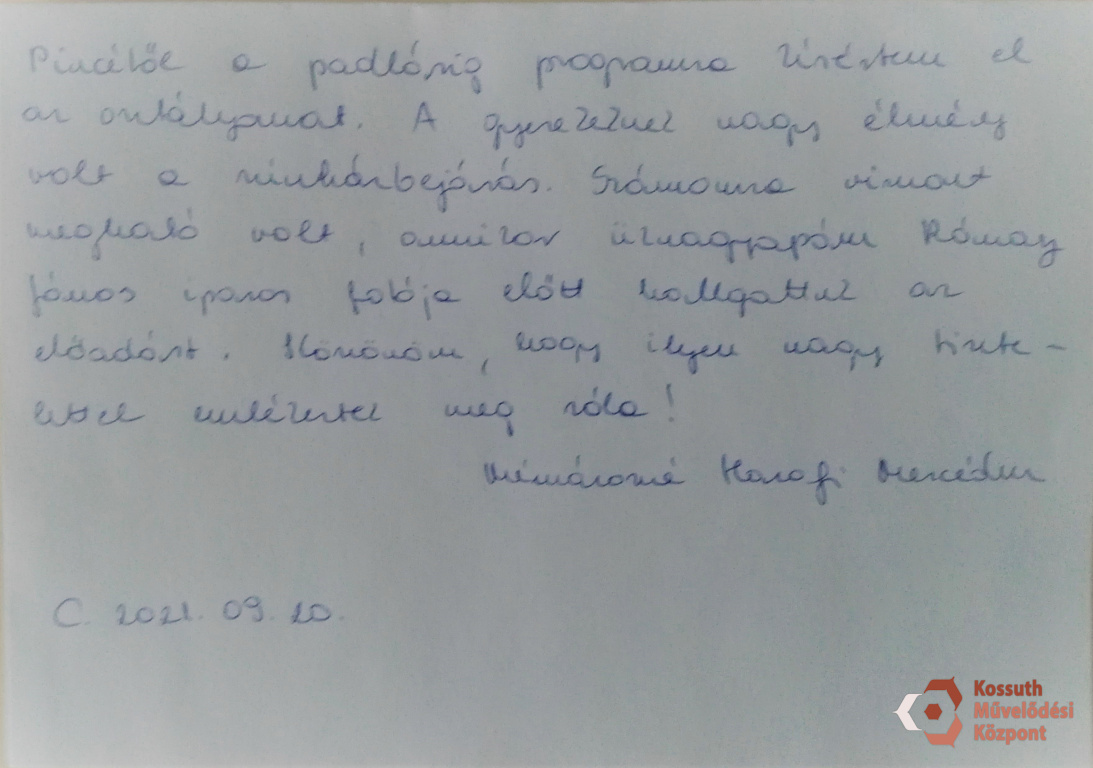 Pincétől a padlásig programra kísértem el
az osztályomat. A gyerekeknek nagy élmény
volt a színházbejárás. Számomra viszont
megható volt, amikor üknagyapám Rómay
János iparos fotója előtt hallgattuk az
előadást. Köszönöm, hogy ilyen nagy tiszte-
lettel emlékeztek meg róla!
Harafi
C. 2021. 09. 20.
Kossuth
Művelődési
Központ